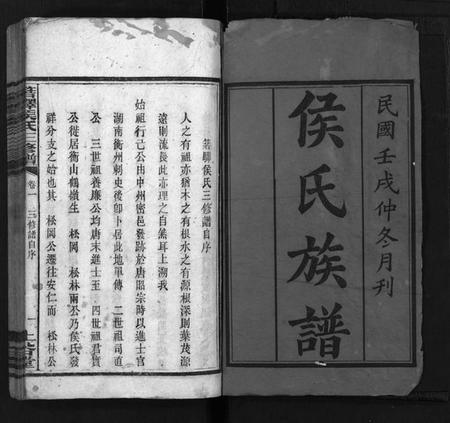 民國壬戌仲冬月刊
侯氏族譜
箬驛侯氏三修譜自序
人之有祖亦猶木之有根水之有源根深則葉茂源
遠則流長此亦理之自然耳上溯我
始祖行己公由中州密邑發跡於唐昭宗時以進士官
湖南衡州刺史後卽卜居此地單傳 二世祖司直
公 三世祖養廉公均唐末進士至 四世祖君實
公徙居衡山鶴嶺生 松岡 松林兩公乃侯氏發
祥分支之始也其 松岡公遷往安仁而 松林公
箬驛侯氏三修譜
卷一 三修譜自序